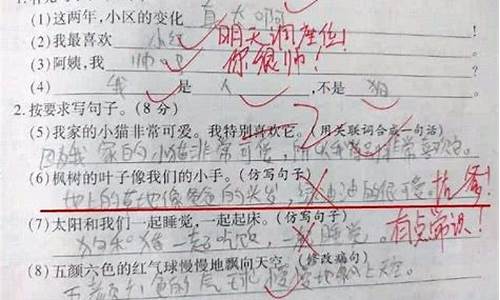 (1)这两年,小区的变化真大啊
(2)我最喜欢 小红 明天调座位!
(3)阿姨,我 帅吗 你很帅!
(4) 我 是 人 ,不是 狗
2.按要求写句子。(8分)
(5)我家的小猫非常可爱。我特别喜欢它。(用关联词合成一句话)
因为我家的小猫非常可爱,所以我非常喜欢它。
(6)枫树的叶子像我们的小手。(仿写句子)
地上的草地像爸爸的头发,绿油油的很可爱。
(7)太阳和我们一起睡觉,一起起床。(仿写句子)
一起吃饭,一起睡觉。 有点常识!
(8)五颜六色的红气球慢慢地飘向天空。(修改病句)
五颜六色的气球慢慢地飘上天空。